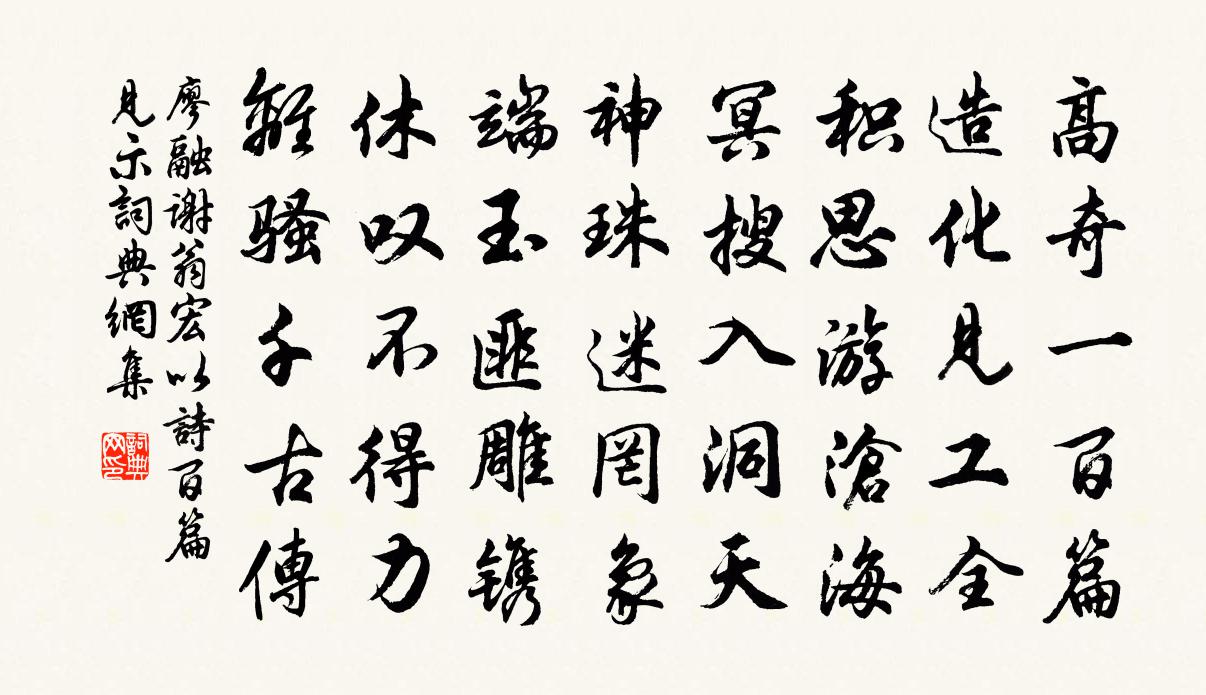 高奇一百篇
造化见工全
积思游滄海
冥搜入洞天
神珠迷罔象
端玉匪雕镌
休叹不得力
離騷千古傳
廖融謝翁宏以詩百篇
見示詞典網集
詞典
网印